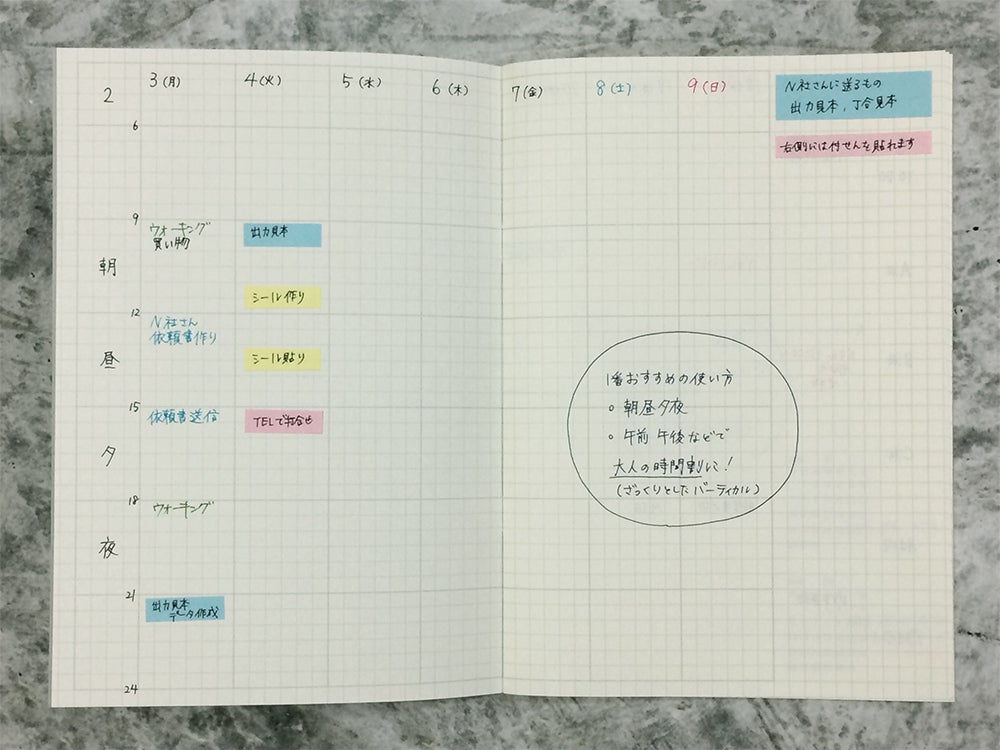 2
3(月)
4(火)
5(水)
6(木)
7(金)
8(土)
9(日)
N社さんに送るもの
出力見本, 丁合見本
右側には付せんを貼れます
6
9
朝
ウォーキング
買い物
出力見本
シール作り
12
昼
N社さん
依頼書作り
シール貼り
15
夕
依頼書送信
TELで打合せ
18
夜
ウォーキング
21
出力見本
データ作成
24
1番おすすめの使い方
○ 朝昼夕夜
○ 午前 午後などで
大人の時間割に!
(ざっくりとしたバーティカル)